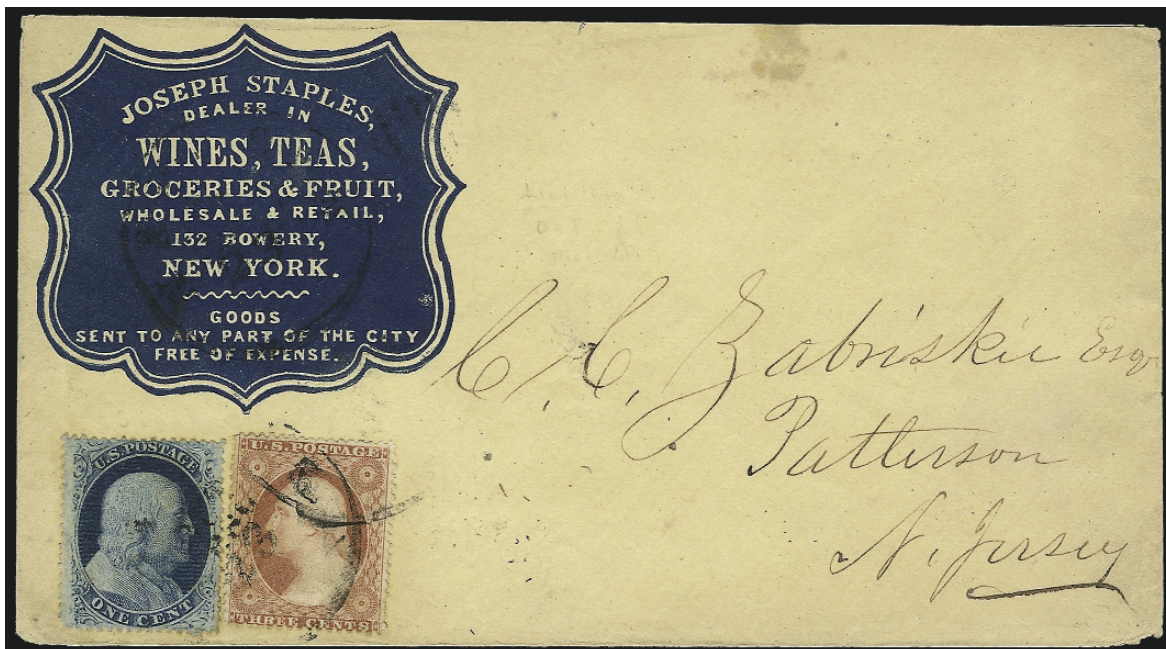 JOSEPH STAPLES,
DEALER IN
WINES, TEAS,
GROCERIES & FRUIT,
WHOLESALE & RETAIL,
132 BOWERY,
NEW YORK.
GOODS
SENT TO ANY PART OF THE CITY
FREE OF EXPENSE.
C. C. Zabriskie Esqr
Patterson
N. Jersey
U.S. POSTAGE
ONE CENT
U.S. POSTAGE
THREE CENTS